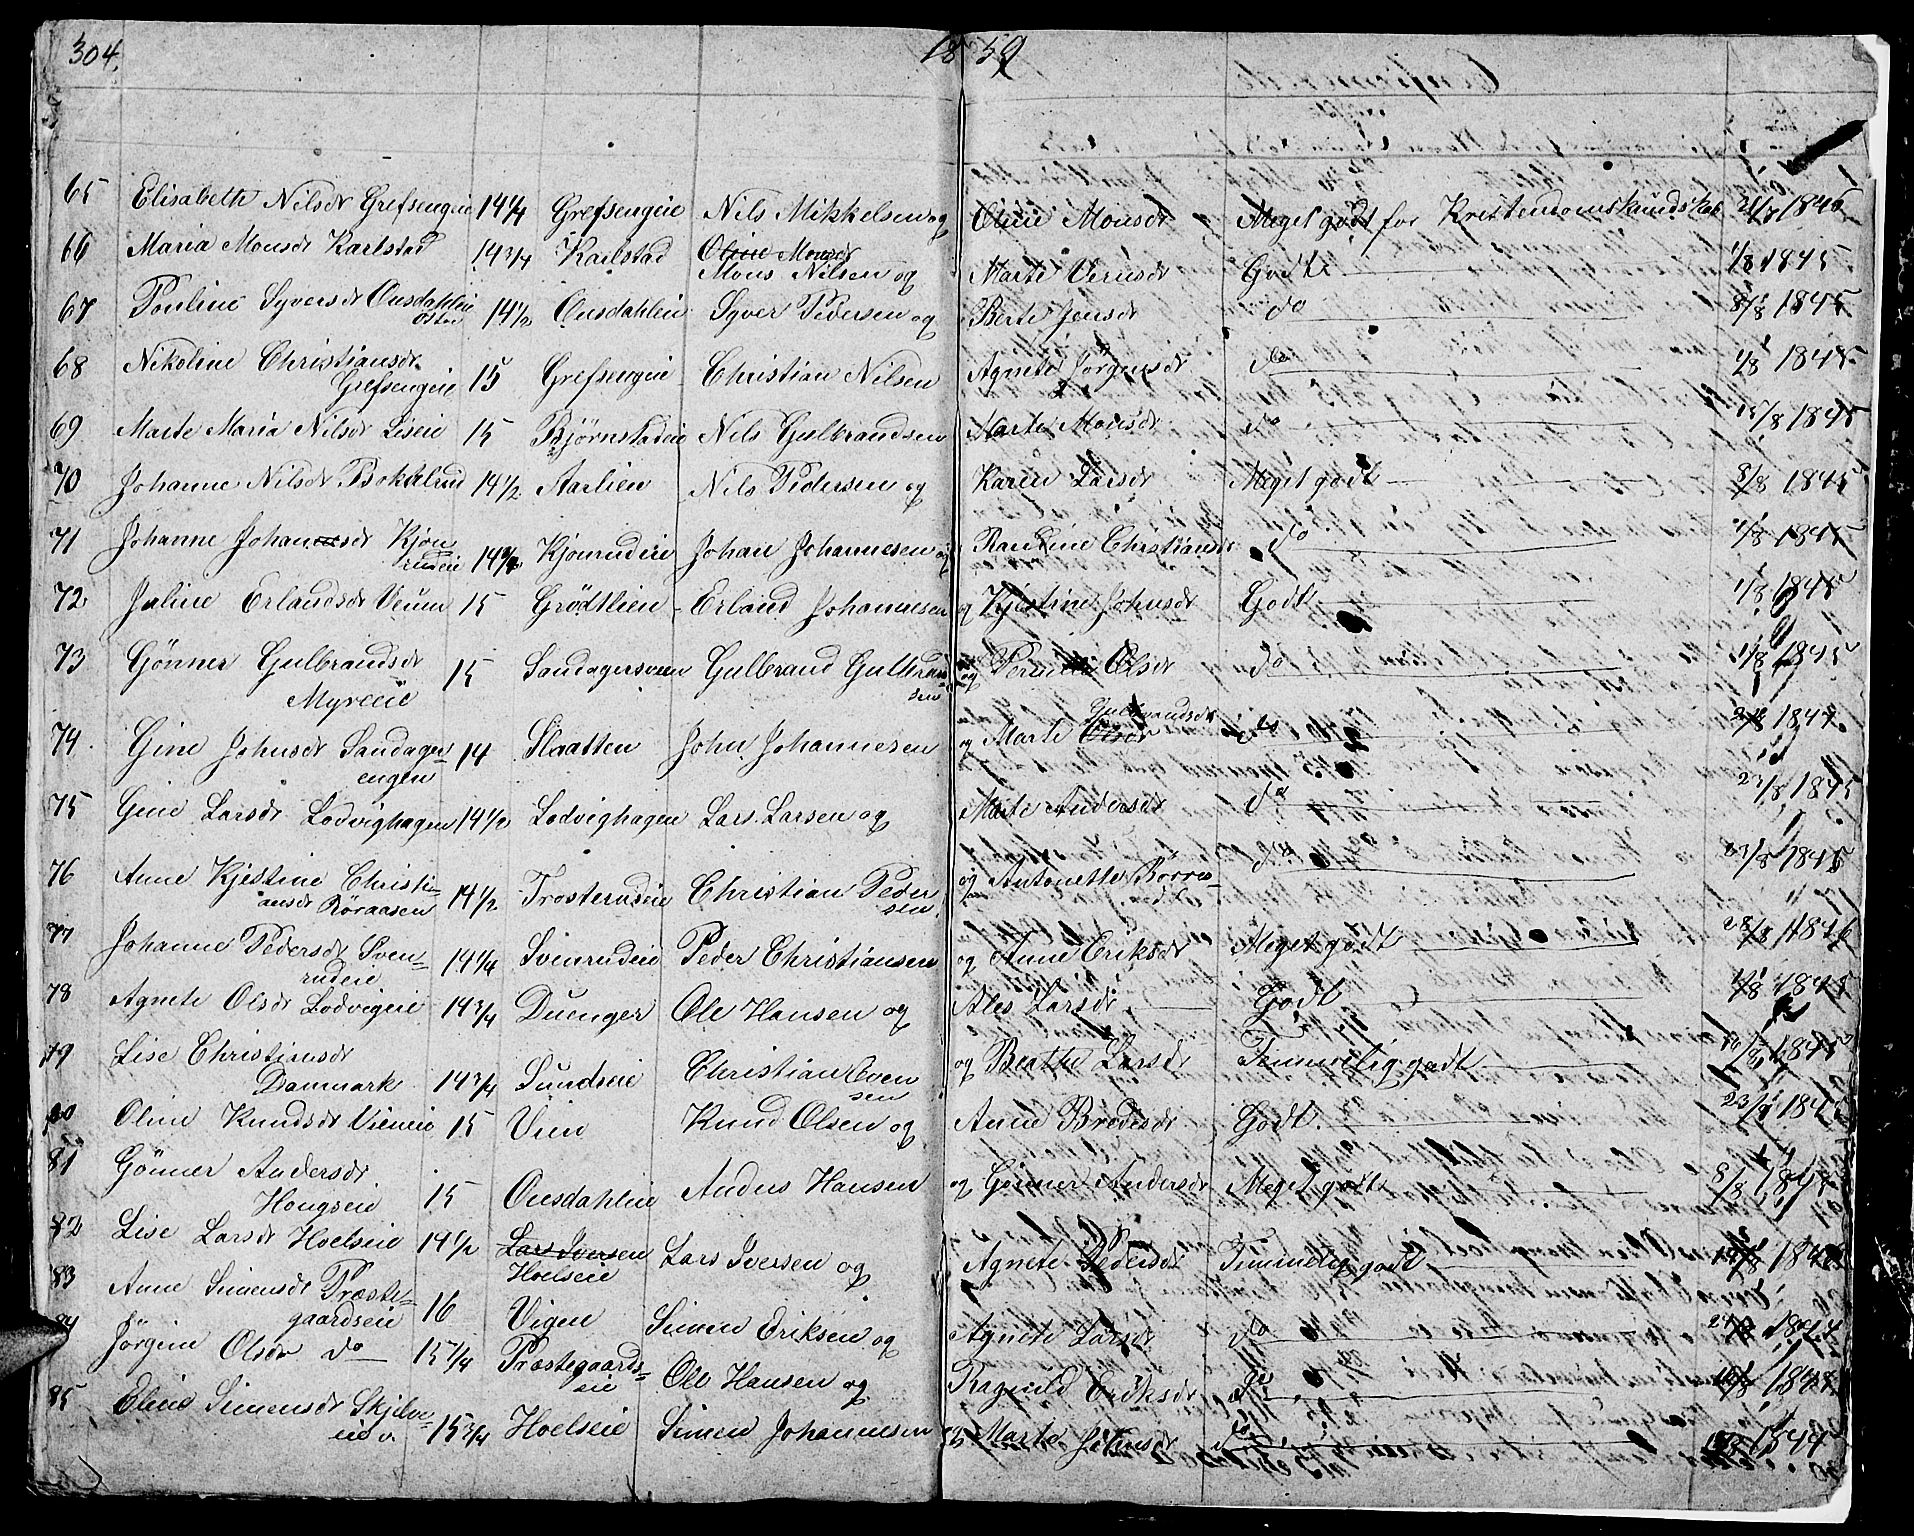 304.
1859
65 Elisabeth Nilsdr Grefsengeie 14 1/4 Grefsengeie Nils Mikkelsen og Oline Monsdr Meget godt for Kristendomskundskab 1846
66 Maria Monsdr Karlstad 14 3/4 Karlstad Oline Monsdr
Mons Nilsen og Marte Iversdr Godt 1/8 1845
67 Pouline Syversdr Ousdahleie
østre 14 1/2 Ousdahleie Syver Pedersen og Berte Jensdr do 8/8 1845
68 Nikoline Christiansdr
Grefsengeie 15 Grefsengeie Christian Nilsen Agnete Jørgensdr do 1/8 1845
69 Marte Maria Nilsdr Liseie 15 Bjørnstadeie Nils Gulbrandsen Marte Monsdr do 15/8 1845
70 Johanne Nilsdr Bokkelrud 14 1/2 Aarlien Nils Pedersen og Karen Larsdr Meget godt 8/8 1845
71 Johanne Johansdr Kjøn-
rudeie 14 3/4 Kjønrudeie Johan Johannesen og Pauline Christiansdr do 1/8 1845
72 Juline Erlandsdr Veum 15 Grødtlien Erland Johannesen og Kjestine Johnsdr Godt 1/8 1845
73 Gønner Gulbrandsdr
Myreeie 15 Sandagersveen Gulbrand Gulbrand-
sen og Pernille Olsdr do 1/8 1845
74. Gine Johnsdr Sandager-
engen 14 Slaatten John Johannesen og Marte Olsdr Gulbrandsdr do
75 Gine Larsdr Lodvighagen 14 1/2 Lodvighagen Lars Larsen og Marte Andersdr do 23/8 1845
76 Anne Kjestine Christi-
ansdr Røraasen 14 1/2 Trosterudeie Christian Peder
sen og Antonette Børres-
dr do 23/8 1845
77 Johanne Pedersdr Sven-
rudeie 14 1/4 Svenrudeie Peder Christiansen og Anne Eriksdr Meget godt 28/8 1846
78 Agnete Olsdr Lodvigeie 14 3/4 Duenger Ole Hansen og Ales Larsdr Godt 1/8 1845
79 Lise Christiansdr
Danmark 14 3/4 Sundseie Christian Even
sen og Beathe Larsdr Temmelig godt 1845
80 Oline Knudsdr Vieneie 15 Vien Knud Olsen og Anne Bredesdr Godt.
81 Gønner Andersdr
Hougseie 15 Ousdahleie Anders Hansen og Gønner Andersdr Meget godt 8/8
82 Lise Larsdr Hoelseie 14 1/2 Lars Iversen
Hoelseie Lars Iversen og Agnete Pedersdr Temmelig godt
83 Anne Simensdr Præste-
gaardseie 16 Vigen Simen Eriksen og Agnete Larsdr do
84 Jørgine Olsdr do 15 1/4 Præstegaards-
eie Ole Hansen og Ragnild Eriksdr do
85 Eline Simensdr 15 3/4 Hoelseie Simen Johannesen og Marte Johnsdr do 1844